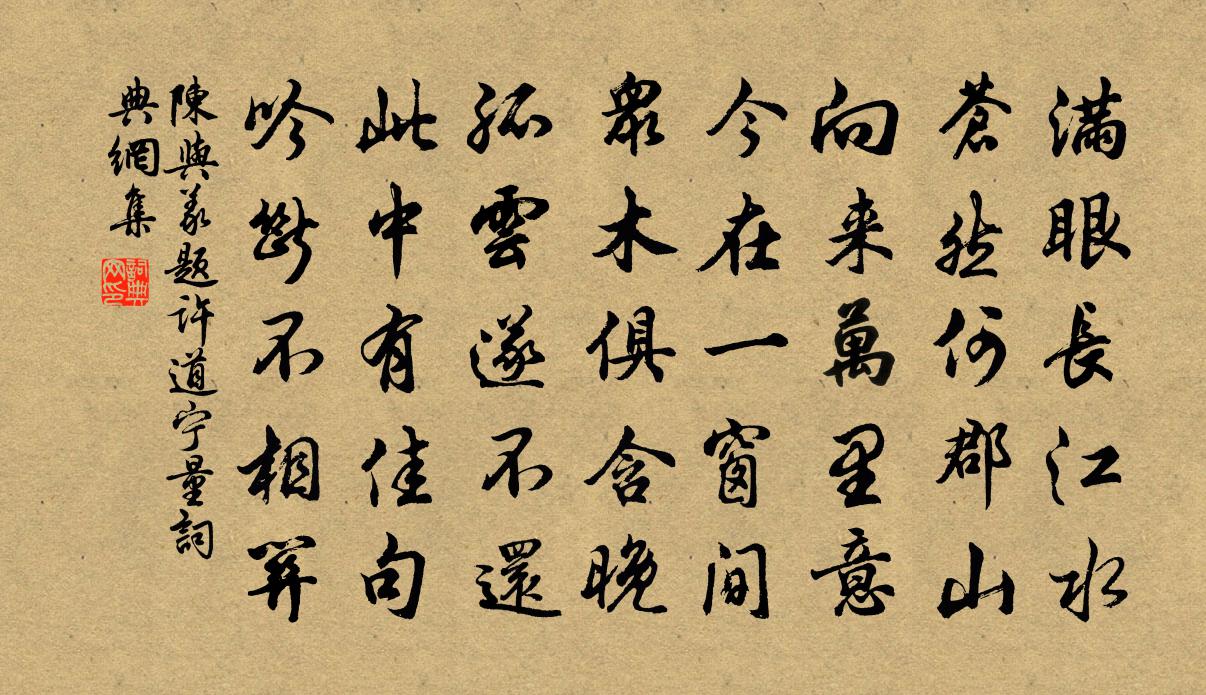 滿眼長江水
蒼然何郡山
向来萬里意
今在一窗間
眾木俱含晚
孤雲遂不還
此中有佳句
吟斷不相關
陳與義題許道宁量詞
典網集
詞典
网印